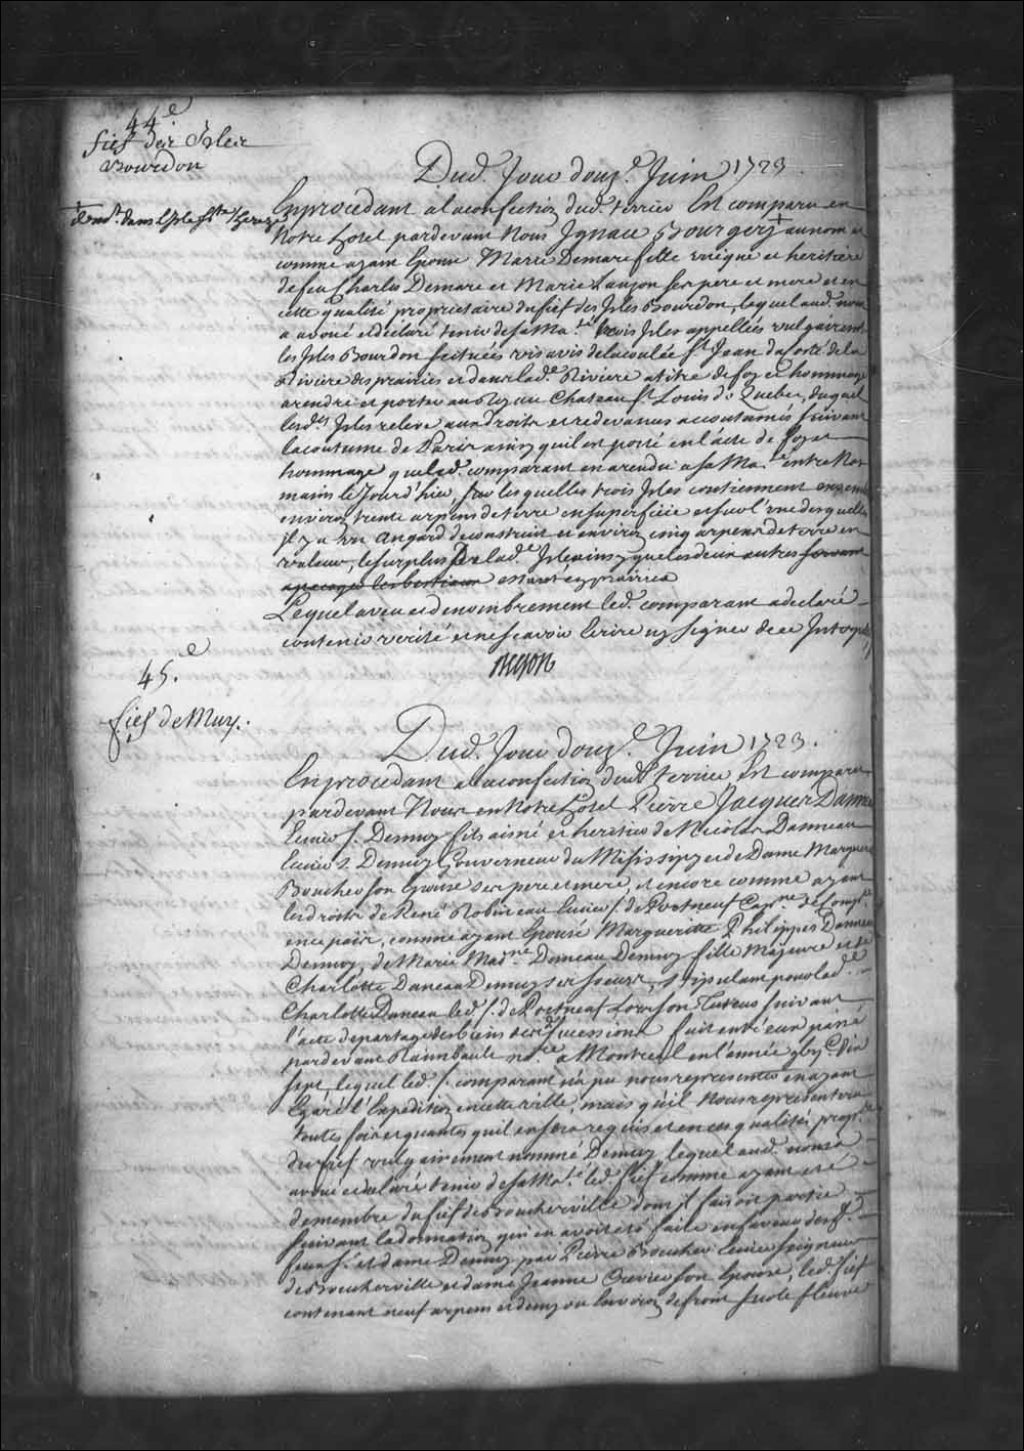 44.e
fief des Isles
Bourdon
Dud. Jour douz.e Juin 1723
demt. dans l'Isle Ste Therese
En procedant a la confection dud. terrier Est comparu en
Notre hotel pardevant Nous Ignace Bourgery + au nom et
comme ayant Epousé Marie Demare fille unique et heritiere
de feu Charles Demare et Marie Lauzon ses pere et mere et en
cette qualité proprietaire du fief des Isles Bourdon, lequel aud. nom
a avoué et declaré tenir de sa Ma.té trois Isles appellées vulgairement
les Isles Bourdon scituées vis avis de la coulée St Jean du costé de la
Riviere des prairies et dans lad.e Riviere a titre de foy et hommage
a rendre et porter au Roy au Chateau St Louis de Quebec, duquel
lesd.es Isles releve aux droits et redevances accoutumés suivant
la coutume de Paris ainsy quil est porté en l'acte de foy et
hommage que led. comparant en a rendu a sa Ma.té entre Nos
mains le Jour d'hier, sur lesquelles trois Isles contiennent ensemble
environ trente arpens de terre en superficie et sur l'une desquelles
Il y a un angard de construit et environ cinq arpens de terre en
valeur, le surplus de lad.e Isle ainsy que les deux autres servant
a pacager les bestiaux estant en prairies
Lequel aveu et denombrement led. comparant a declaré
contenir verité et ne scavoir Ecrire ny signer de ce Interpellé
Begon
45.e
fief de Muy.
Dud. Jour douz.e Juin 1723.
En procedant a la confection dud. terrier Est comparu
pardevant Nous en Notre hotel Pierre Jacques Danneau
Ecuier S. Demuy fils aisné et heritier de Nicolas Danneau
Ecuier S. Demuy Gouverneur du Missisipy et de Dame Marguerite
Boucher son Epouse ses pere et mere, et encore comme ayant
les droits de René Robineau Ecuier S. de Portneuf Cap.ne de Comp.e
en ce pais, comme ayant Epousé Margueritte Philippes Danneau
Demuy, de Marie Mad.ne Daneau Demuy fille Majeure et de
Charlotte Daneau Demuy ses soeurs, stipulant pour lad.e
Charlotte Daneau led. S. de Portneuf Lors son Tuteur suivant
l'acte de partage des biens desd. successions fait entr'eux passé
pardevant Raimbault no.re a Montreal en l'année
sept, lequel led. S. comparant n'a pu nous representer en ayant
Egaré l'Expedition en cette ville, mais qu'il Nous representera
toutes fois et quantes quil en sera requis et en ces qualités prop.re
du fief vulgairement nommé Demuy lequel aud. nom a
avoué et declaré tenir de sa Ma.té led. fief comme ayant eté
demembré du fief de Boucherville dont Il faisoit partie
suivant la donnation qui en avoit eté faite en faveur desd.
feu S. et dame Demuy par Pierre Boucher Ecuier Seigneur
de Boucherville et dame Jeanne Crevier son Epouse, led. fief
contenant neuf arpens et demy ou Environ de front sur le fleuve